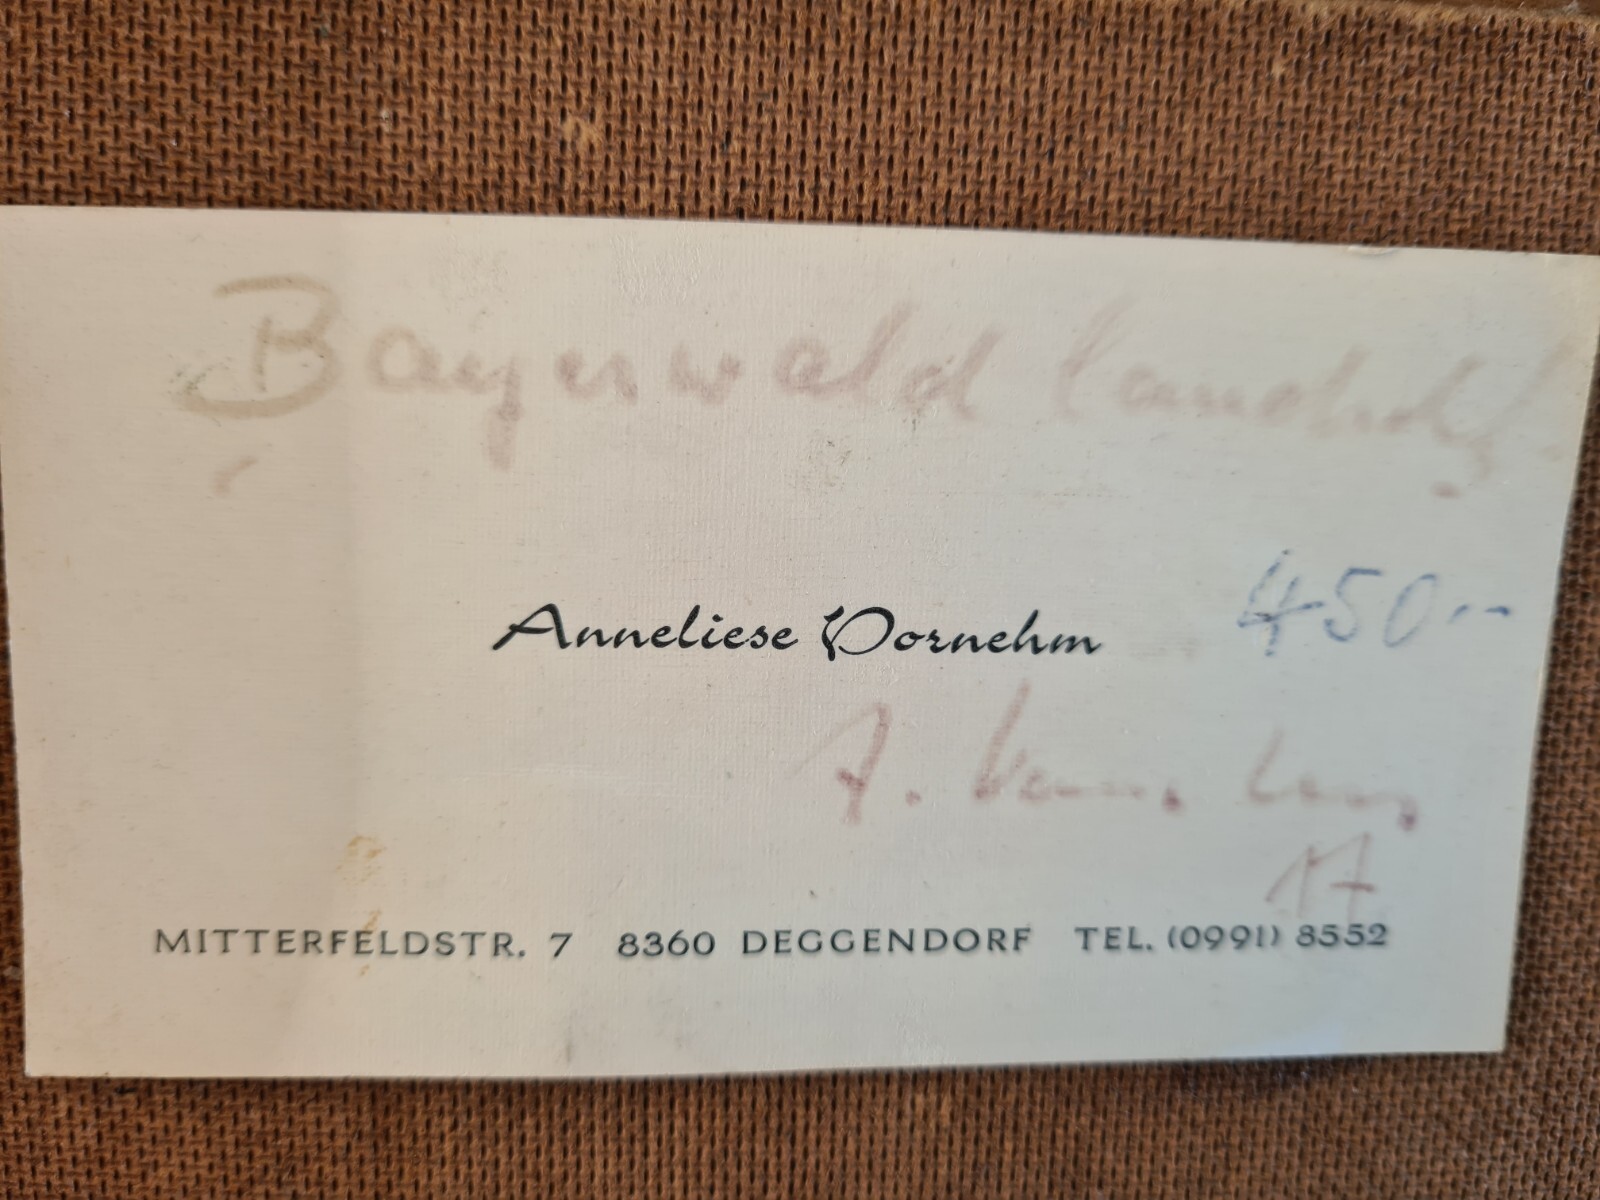 Bayerwald
450.--
Anneliese Vornehm
17
MITTERFELDSTR. 7 8360 DEGGENDORF TEL. (0991) 8552